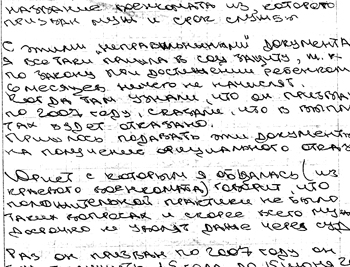 название военкомата из, которого
призван муж и срок службы
С этими "неправильными" документа
я все таки пошла в соц защиту, т.к.
по закону при достижении ребенком
6 месяцев ничего не начислят.
Когда там узнали, что он призван
по 2007 году, сказали, что в выпла
тах будет отказано.
Пришлось подавать эти документы
на получение официального отказ
Юрист с которым я общалась (из
краевого военкомата) говорит, что
положительной практики не было
таких вопросах и скорее всего муж
досрочно не уволят даже через суд
Раз он призван по 2007 году он